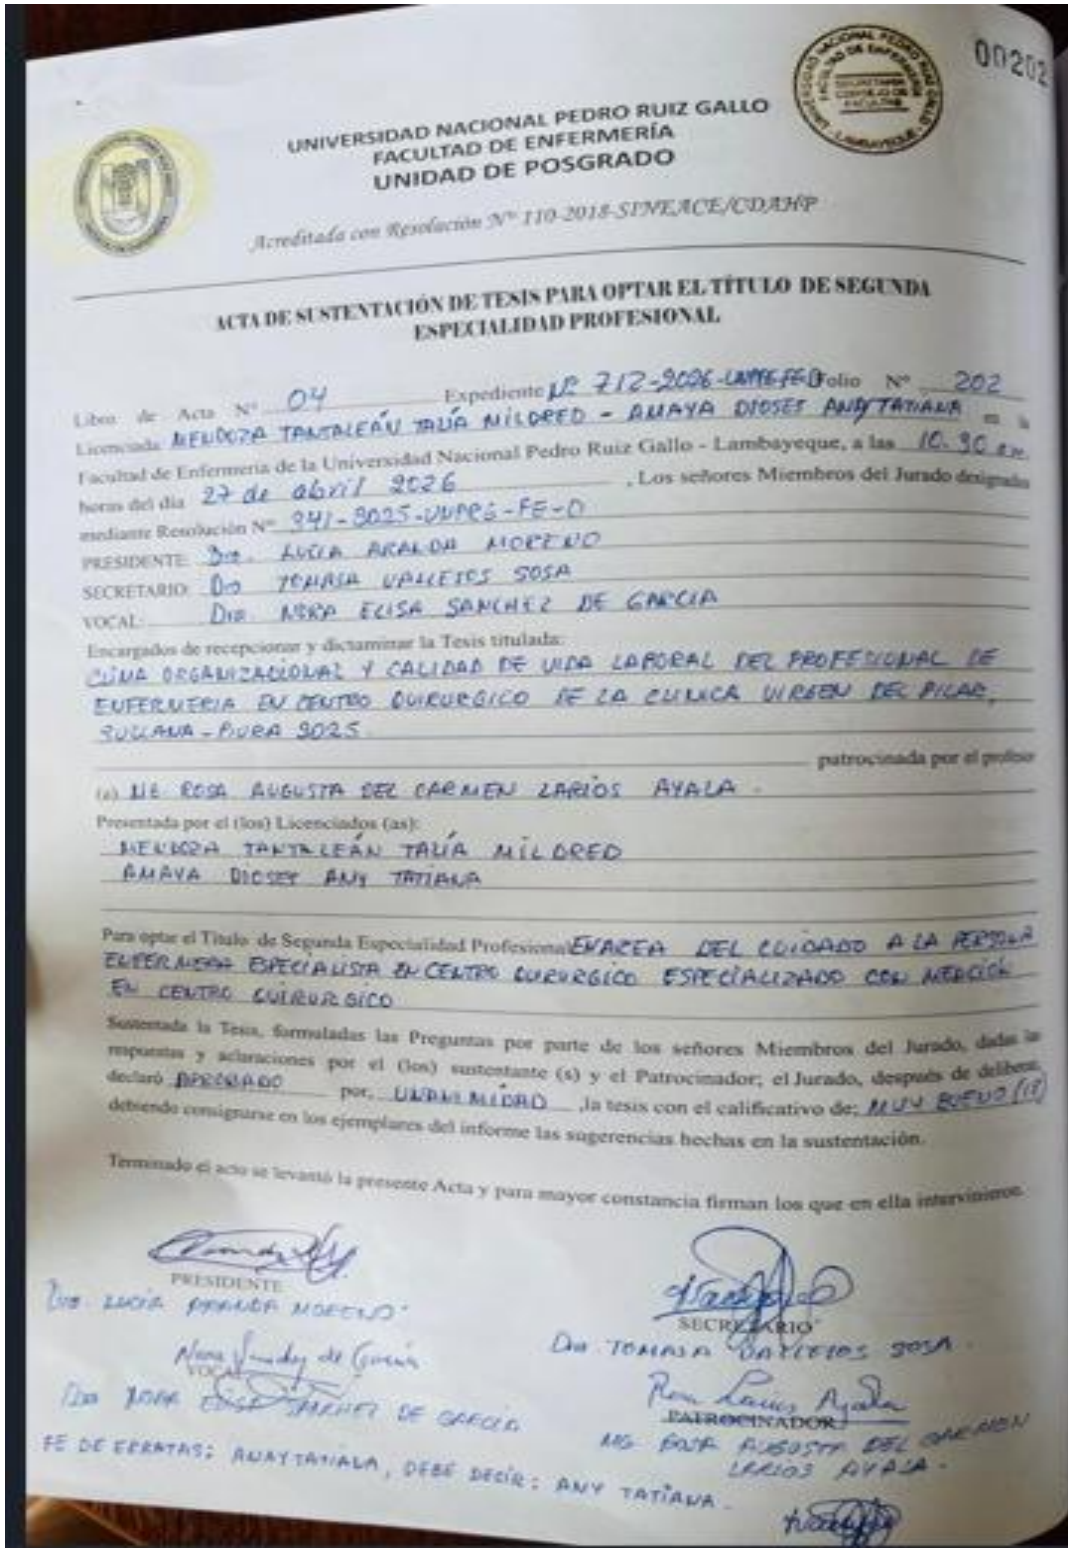 00202
UNIVERSIDAD NACIONAL PEDRO RUIZ GALLO
FACULTAD DE ENFERMERÍA
UNIDAD DE POSGRADO
UNIVERSIDAD NACIONAL PEDRO RUIZ GALLO
FACULTAD DE ENFERMERÍA
SECRETARIA
CONSEJO DE
FACULTAD
LAMBAYEQUE
Acreditada con Resolución N° 110-2018-SINEACE/CDAHP
ACTA DE SUSTENTACIÓN DE TESIS PARA OPTAR EL TÍTULO DE SEGUNDA
ESPECIALIDAD PROFESIONAL
Libro de Acta N° 04 Expediente Nº 712-2026- Folio N° 202
Licenciada MENDOZA TANTALEÁN TALÍA MILDRED - AMAYA DIOSES ANAYTATIANA en la
Facultad de Enfermería de la Universidad Nacional Pedro Ruiz Gallo - Lambayeque, a las 10.30 am
horas del día 27 de abril 2026, Los señores Miembros del Jurado designados
mediante Resolución N° 341-2025-UNPRG-FE-D
PRESIDENTE: Dra. LUCIA ARANDA MORENO
SECRETARIO: Dra TOMASA VALLEJOS SOSA
VOCAL: Dra. NORA ELISA SANCHEZ DE GARCIA
Encargados de recepcionar y dictaminar la Tesis titulada:
CLIMA ORGANIZACIONAL Y CALIDAD DE VIDA LABORAL DEL PROFESIONAL DE
ENFERMERIA EN CENTRO QUIRURGICO DE LA CLINICA VIRGEN DEL PILAR,
SULLANA - PIURA 2025.
patrocinada por el profesor
(a) MG ROSA AUGUSTA DEL CARMEN LARIOS AYALA.
Presentada por el (los) Licenciados (as):
MENDOZA TANTALEÁN TALÍA MILDRED
AMAYA DIOSES ANY TATIANA
Para optar el Título de Segunda Especialidad Profesional EN AREA DEL CUIDADO A LA PERSONA
ENFERMERA ESPECIALISTA EN CENTRO QUIRURGICO ESPECIALIZADO CON MENCION
EN CENTRO QUIRURGICO
Sustentada la Tesis, formuladas las Preguntas por parte de los señores Miembros del Jurado, dadas las
respuestas y aclaraciones por el (los) sustentante (s) y el Patrocinador; el Jurado, después de deliberar,
declaró APROBADO por, UNANIMIDAD ,la tesis con el calificativo de; MUY BUENO (18)
debiendo consignarse en los ejemplares del informe las sugerencias hechas en la sustentación.
Terminado el acto se levantó la presente Acta y para mayor constancia firman los que en ella intervinieron.
PRESIDENTE
Dra. LUCÍA ARANDA MORENO
SECRETARIO
Dra TOMASA VALLEJOS SOSA.
Nora Sanchez de García
VOCAL
Dra NORA ELISA SANCHEZ DE GARCIA
Rosa Larios Ayala
PATROCINADOR
MG ROSA AUGUSTA DEL CARMEN
LARIOS AYALA.
FE DE ERRATAS: ANAYTATIALA, DEBE DECIR: ANY TATIANA.